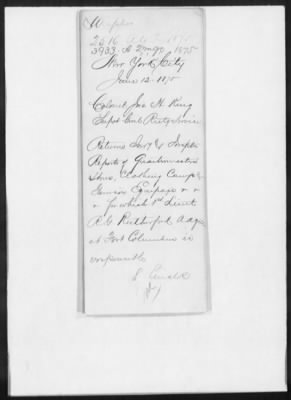 3933. A 2mgo 1875
New York City
June 12. 1875
Colonel Jno H. King
Supt Genl Rectg Service
Returns Invy & Inspn
Reports of Quartermasters
Stores, Clothing Camp &
Garrison Equipage
for which 1st Lieut
R. G. Rutherford A.a.q.m.
at Fort Columbus is
responsible